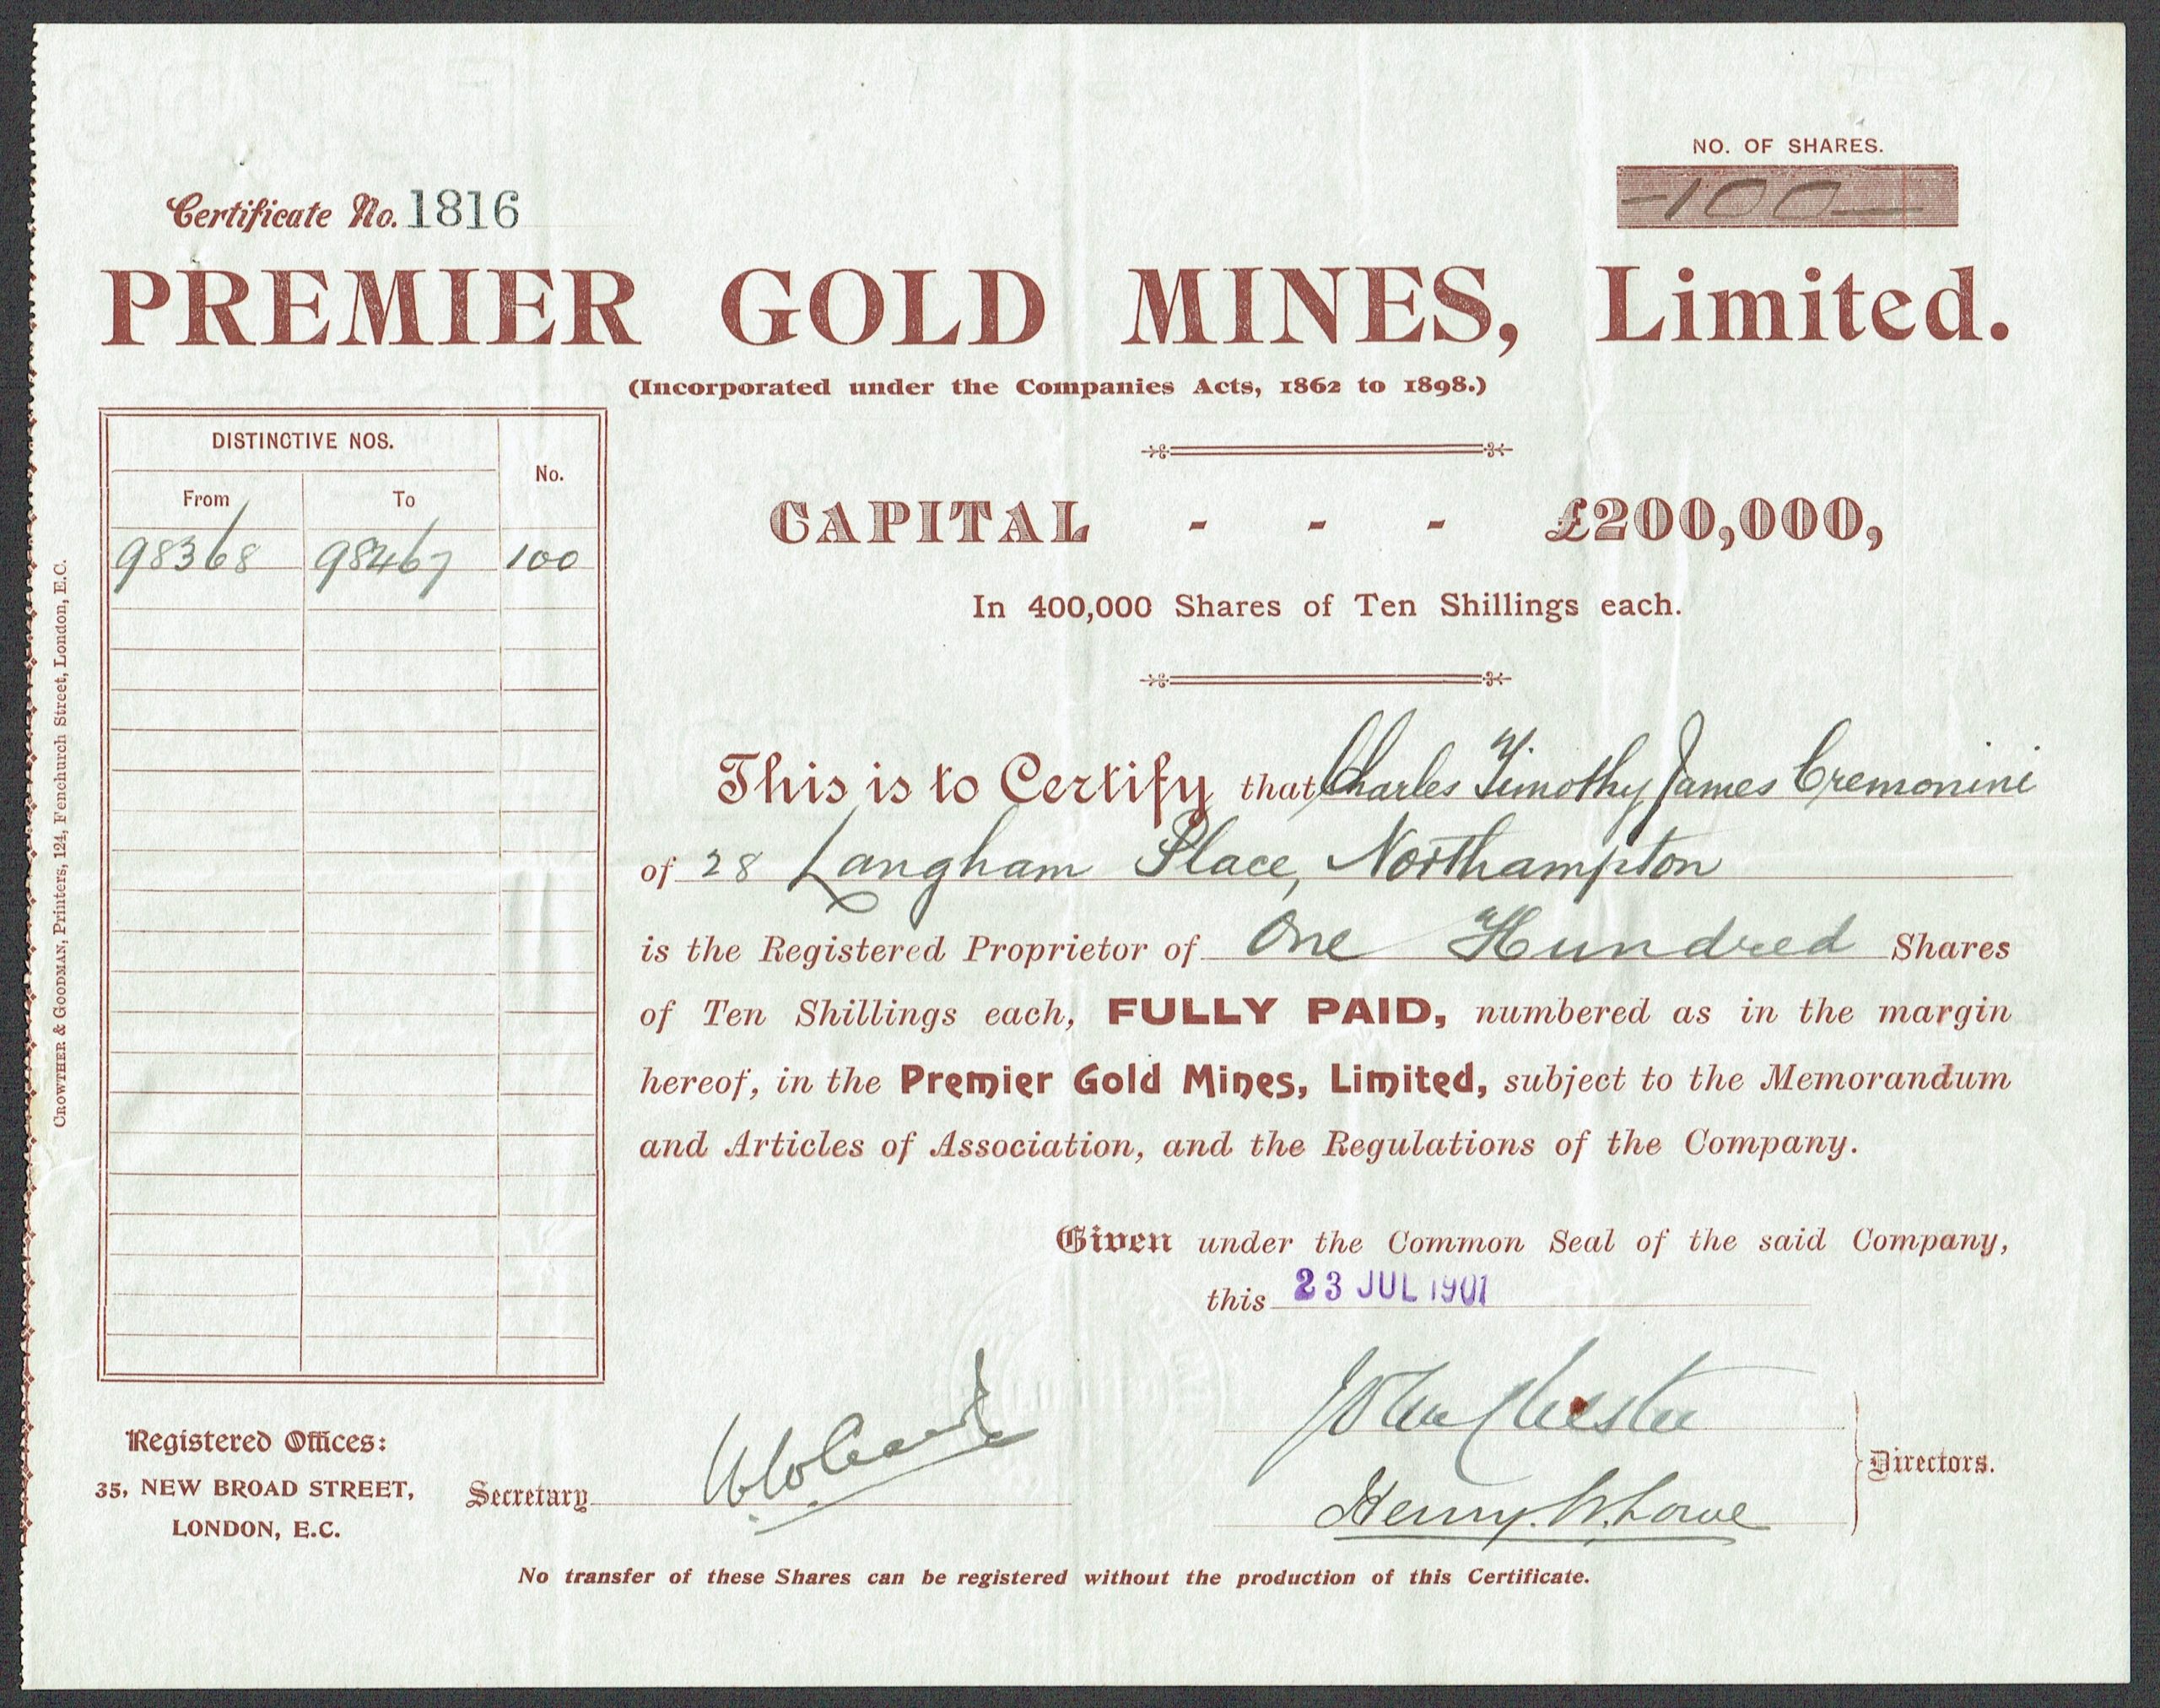 NO. OF SHARES.
-100-
Certificate No. 1816
PREMIER GOLD MINES, Limited.
(Incorporated under the Companies Acts, 1862 to 1898.)
DISTINCTIVE NOS.
No.
From To
98368 98467 100
CAPITAL - - - £200,000,
In 400,000 Shares of Ten Shillings each.
This is to Certify that Charles Timothy James Cremonini
of 28 Langham Place, Northampton
is the Registered Proprietor of One Hundred Shares
of Ten Shillings each, FULLY PAID, numbered as in the margin
hereof, in the Premier Gold Mines, Limited, subject to the Memorandum
and Articles of Association, and the Regulations of the Company.
Given under the Common Seal of the said Company,
this 23 JUL 1901
John Chester
Henry. W. Lowe
Directors.
Secretary
Registered Offices:
35, NEW BROAD STREET,
LONDON, E.C.
No transfer of these Shares can be registered without the production of this Certificate.
CROWTHER & GOODMAN, Printers, 124, Fenchurch Street, London, E.C.